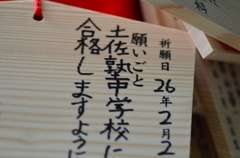 祈願日 26年2月2
願いごと
土佐塾中学校に
合格しますように